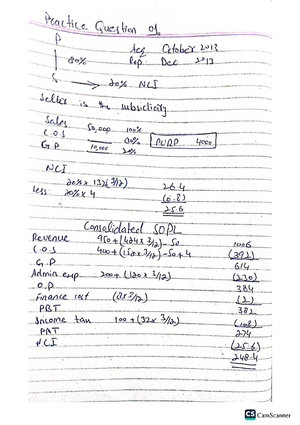 Practice Question 01
P
Acq October 2013
80%
Rep. Dec 2013
S → 20% NCI
Seller is the subsidiary
Sales 50,000 100%
C.O.S 80% PURP 4000
G.P 10,000 20%
NCI
20% × 132(3/12) 26.4
less 20% × 4 (0.8)
25.6
Consolidated SOPL
Revenue 950 + (424 × 3/12) - 50 1006
C.O.S 400 + (150 × 3/12) - 50 + 4 (392)
G.P 614
Admin exp 200 + (120 × 3/12) (230)
O.P 384
Finance cost (8 × 3/12) (2)
PBT 382
Income tax 100 + (32 × 3/12) (108)
PAT 274
NCI (25.6)
248.4
CS CamScanner